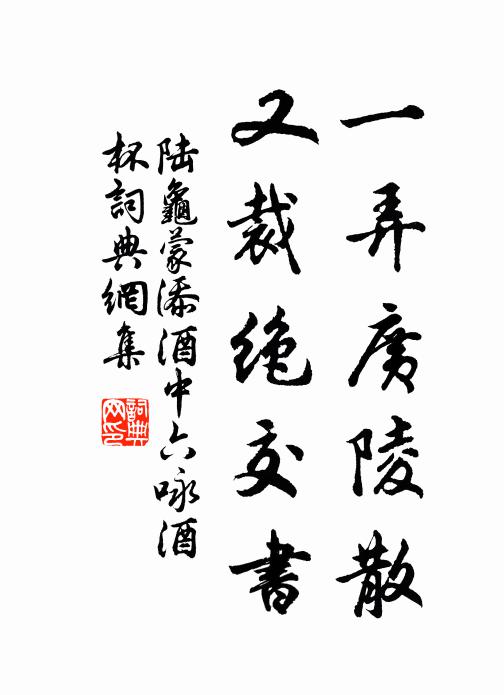 一弄廣陵散
又裁絶交書
陸龜蒙添酒中六咏酒
杯詞典網集
詞典网印